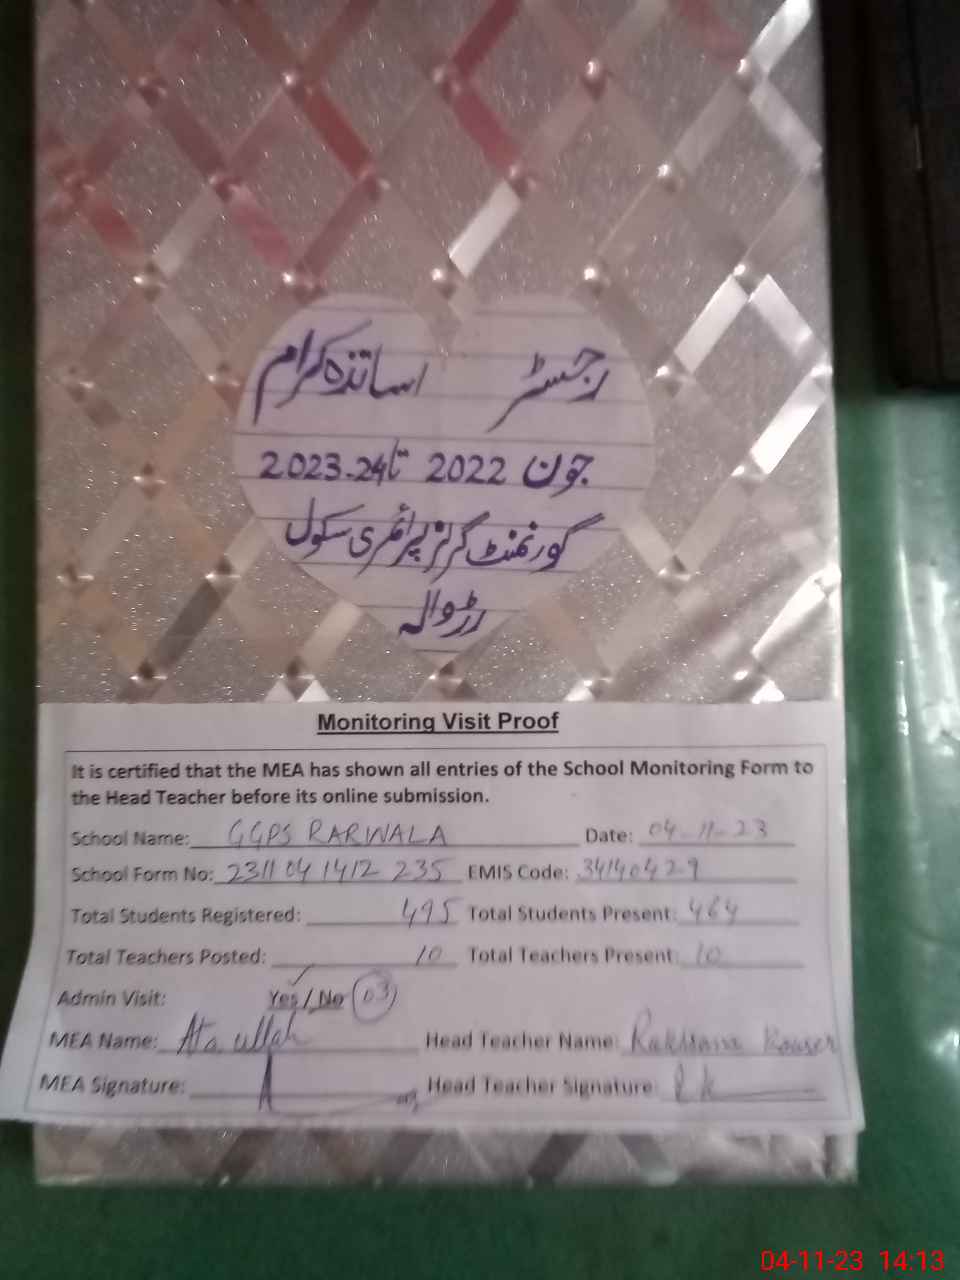 رجسٹر اساتذہ کرام
جون 2022 تا 2023-24
گورنمنٹ گرلز پرائمری سکول
رڑوالہ
Monitoring Visit Proof
It is certified that the MEA has shown all entries of the School Monitoring Form to
the Head Teacher before its online submission.
School Name: GGPS RARWALA Date: 04-11-23
School Form No: 2311 04 1412 235 EMIS Code: 34140429
Total Students Registered: 495 Total Students Present: 464
Total Teachers Posted: 10 Total Teachers Present: 10
Admin Visit: Yes / No 03
MEA Name: Ata ullah Head Teacher Name: Rukhsana Kouser
MEA Signature: Head Teacher Signature: R k
04-11-23 14:13